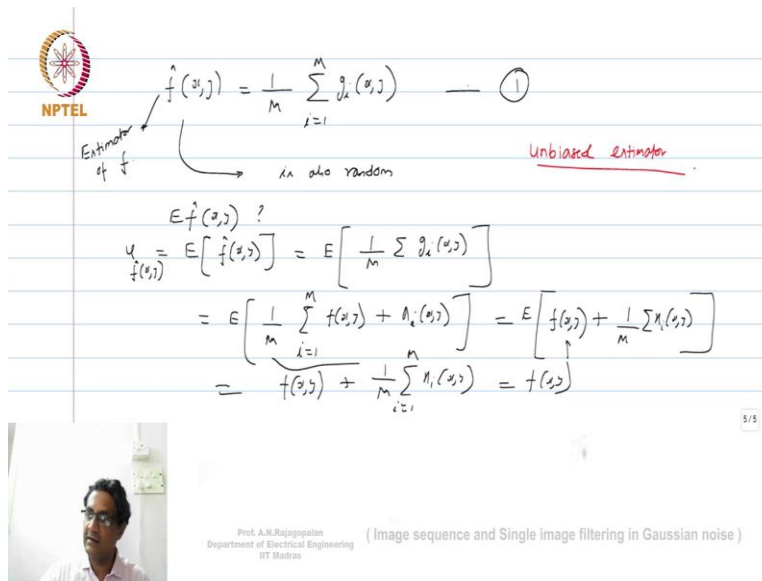 NPTEL
f̂(x,y) = 1/M Σ_{i=1}^{M} g_i(x,y) — ①
Estimator of f
is also random
Unbiased estimator
E f̂(x,y) ?
μ_{f̂(x,y)} = E[f̂(x,y)] = E[1/M Σ g_i(x,y)]
= E[1/M Σ_{i=1}^{M} f(x,y) + n_i(x,y)] = E[f(x,y) + 1/M Σ n_i(x,y)]
= f(x,y) + 1/M Σ_{i=1}^{M} n_i(x,y) = f(x,y)
5/5
Prof. A.N.Rajagopalan
Department of Electrical Engineering
IIT Madras
( Image sequence and Single image filtering in Gaussian noise )